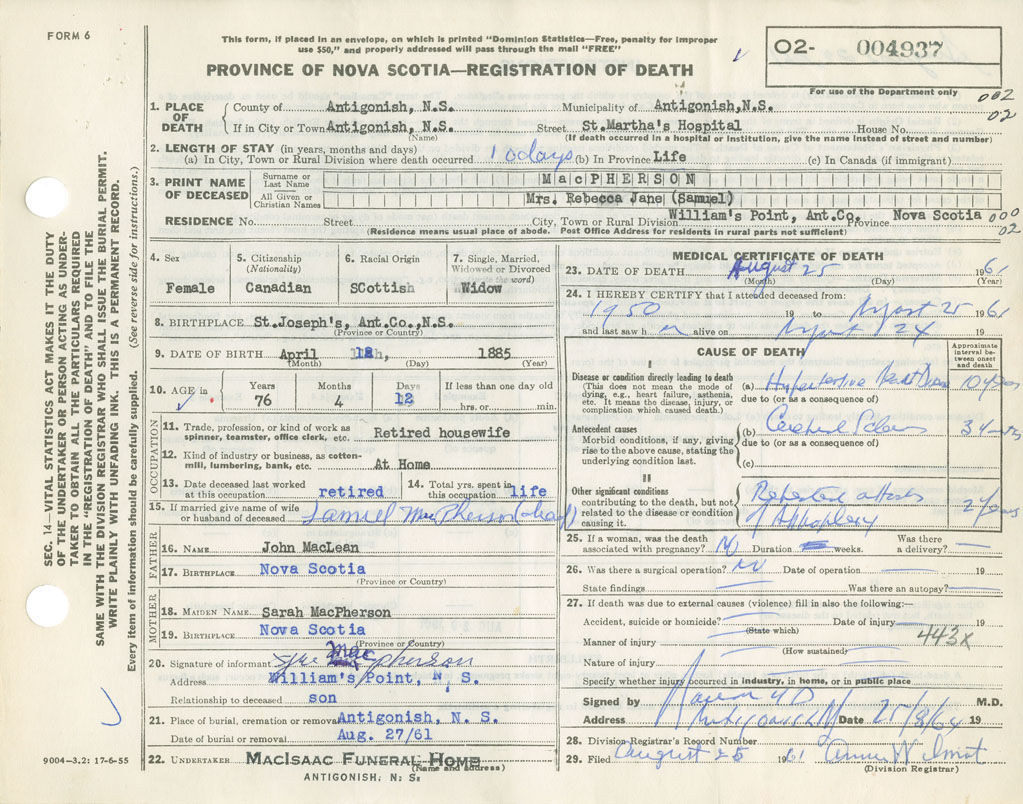 FORM 6
This form, if placed in an envelope, on which is printed "Dominion Statistics—Free, penalty for improper
use $50," and properly addressed will pass through the mail "FREE"
PROVINCE OF NOVA SCOTIA—REGISTRATION OF DEATH
02- 004937
For use of the Department only
002
02
1. PLACE OF DEATH
County of Antigonish, N.S. Municipality of Antigonish,N.S.
If in City or Town Antigonish, N.S. Street St.Martha's Hospital House No.
(Name) (If death occurred in a hospital or institution, give the name instead of street and number)
2. LENGTH OF STAY (in years, months and days)
(a) In City, Town or Rural Division where death occurred 10 days (b) In Province Life (c) In Canada (if immigrant)
3. PRINT NAME OF DECEASED
Surname or Last Name MacPHERSON
All Given or Christian Names Mrs. Rebecca Jane (Samuel)
RESIDENCE No. Street City, Town or Rural Division William's Point, Ant.Co. Province Nova Scotia 000
02
(Residence means usual place of abode. Post Office Address for residents in rural parts not sufficient)
4. Sex
Female
5. Citizenship
(Nationality)
Canadian
6. Racial Origin
SCottish
7. Single, Married,
Widowed or Divorced
the word)
Widow
8. BIRTHPLACE St.Joseph's, Ant.Co.,N.S.
(Province or Country)
9. DATE OF BIRTH April 1885
(Month) (Day) (Year)
10. AGE in
Years Months Days If less than one day old
76 4 12 hrs. or min.
OCCUPATION
11. Trade, profession, or kind of work as
spinner, teamster, office clerk, etc. Retired housewife
12. Kind of industry or business, as cotton-
mill, lumbering, bank, etc. At Home
13. Date deceased last worked
at this occupation retired
14. Total yrs. spent in
this occupation life
15. If married give name of wife
or husband of deceased Samuel MacPherson
FATHER
16. NAME John MacLean
17. BIRTHPLACE Nova Scotia
(Province or Country)
MOTHER
18. MAIDEN NAME Sarah MacPherson
19. BIRTHPLACE Nova Scotia
(Province or Country)
20. Signature of informant Macpherson
Address William's Point, N. S.
Relationship to deceased son
21. Place of burial, cremation or removal Antigonish, N. S.
Date of burial or removal Aug. 27/61
22. UNDERTAKER MACISAAC FUNERAL HOME
(Name and address)
ANTIGONISH, N. S.
9004—3.2: 17-6-55
MEDICAL CERTIFICATE OF DEATH
23. DATE OF DEATH August 25 1961
(Month) (Day) (Year)
24. I HEREBY CERTIFY that I attended deceased from:
1950 19 to August 25 1961
and last saw h er alive on August 24 19
CAUSE OF DEATH
Approximate
interval be-
tween onset
and death
I
Disease or condition directly leading to death
(This does not mean the mode of
dying, e.g., heart failure, asthenia,
etc. It means the disease, injury, or
complication which caused death.)
(a) Hypertensive Heart Disease 10 years
due to (or as a consequence of)
Antecedent causes
Morbid conditions, if any, giving
rise to the above cause, stating the
underlying condition last.
(b) Cerebral
due to (or as a consequence of)
(c)
II
Other significant conditions
contributing to the death, but not
related to the disease or condition
causing it.
Repeated attacks
of Apoplexy
2 years
25. If a woman, was the death
associated with pregnancy? No Duration weeks. Was there
a delivery?
26. Was there a surgical operation? No Date of operation 19
State findings Was there an autopsy?
27. If death was due to external causes (violence) fill in also the following:—
Accident, suicide or homicide? Date of injury 19
(State which)
443X
Manner of injury
(How sustained)
Nature of injury
Specify whether injury occurred in industry, in home, or in public place
Signed by M.D.
Address Antigonish Date 25/8/61 19
28. Division Registrar's Record Number
29. Filed August 25 1961
(Division Registrar)
SEC. 14—VITAL STATISTICS ACT MAKES IT THE DUTY
OF THE UNDERTAKER OR PERSON ACTING AS UNDER-
TAKER TO OBTAIN ALL THE PARTICULARS REQUIRED
IN THE "REGISTRATION OF DEATH" AND TO FILE THE
SAME WITH THE DIVISION REGISTRAR WHO SHALL ISSUE THE BURIAL PERMIT.
WRITE PLAINLY WITH UNFADING INK. THIS IS A PERMANENT RECORD.
Every item of information should be carefully supplied. (See reverse side for instructions.)